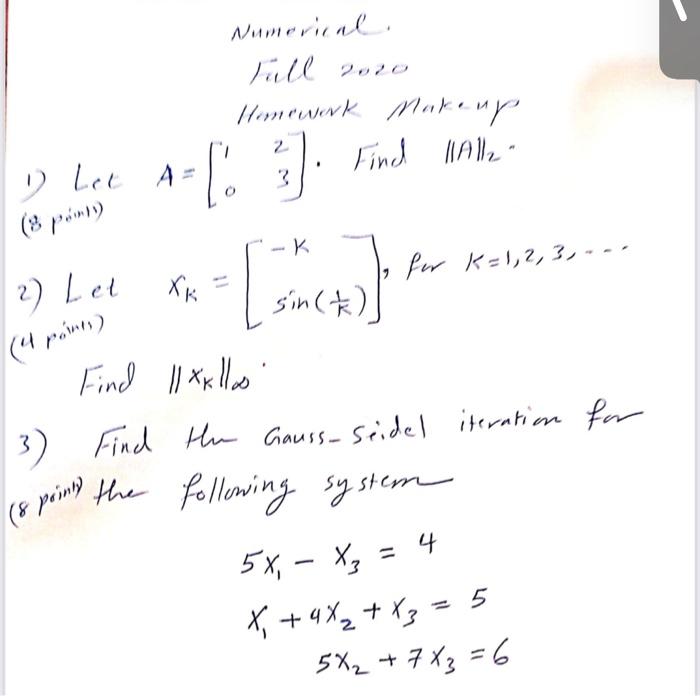 Numerical.
Fall 2020
Homework Makeup
1) Let A = [1 2; 0 3]. Find ||A||₂.
(8 points)
2) Let x_K = [-K; sin(1/K)], for K=1,2,3,....
(4 points)
Find ||x_K||∞.
3) Find the Gauss-Seidel iteration for
(8 points) the following system
5x₁ - x₃ = 4
x₁ + 4x₂ + x₃ = 5
5x₂ + 7x₃ = 6